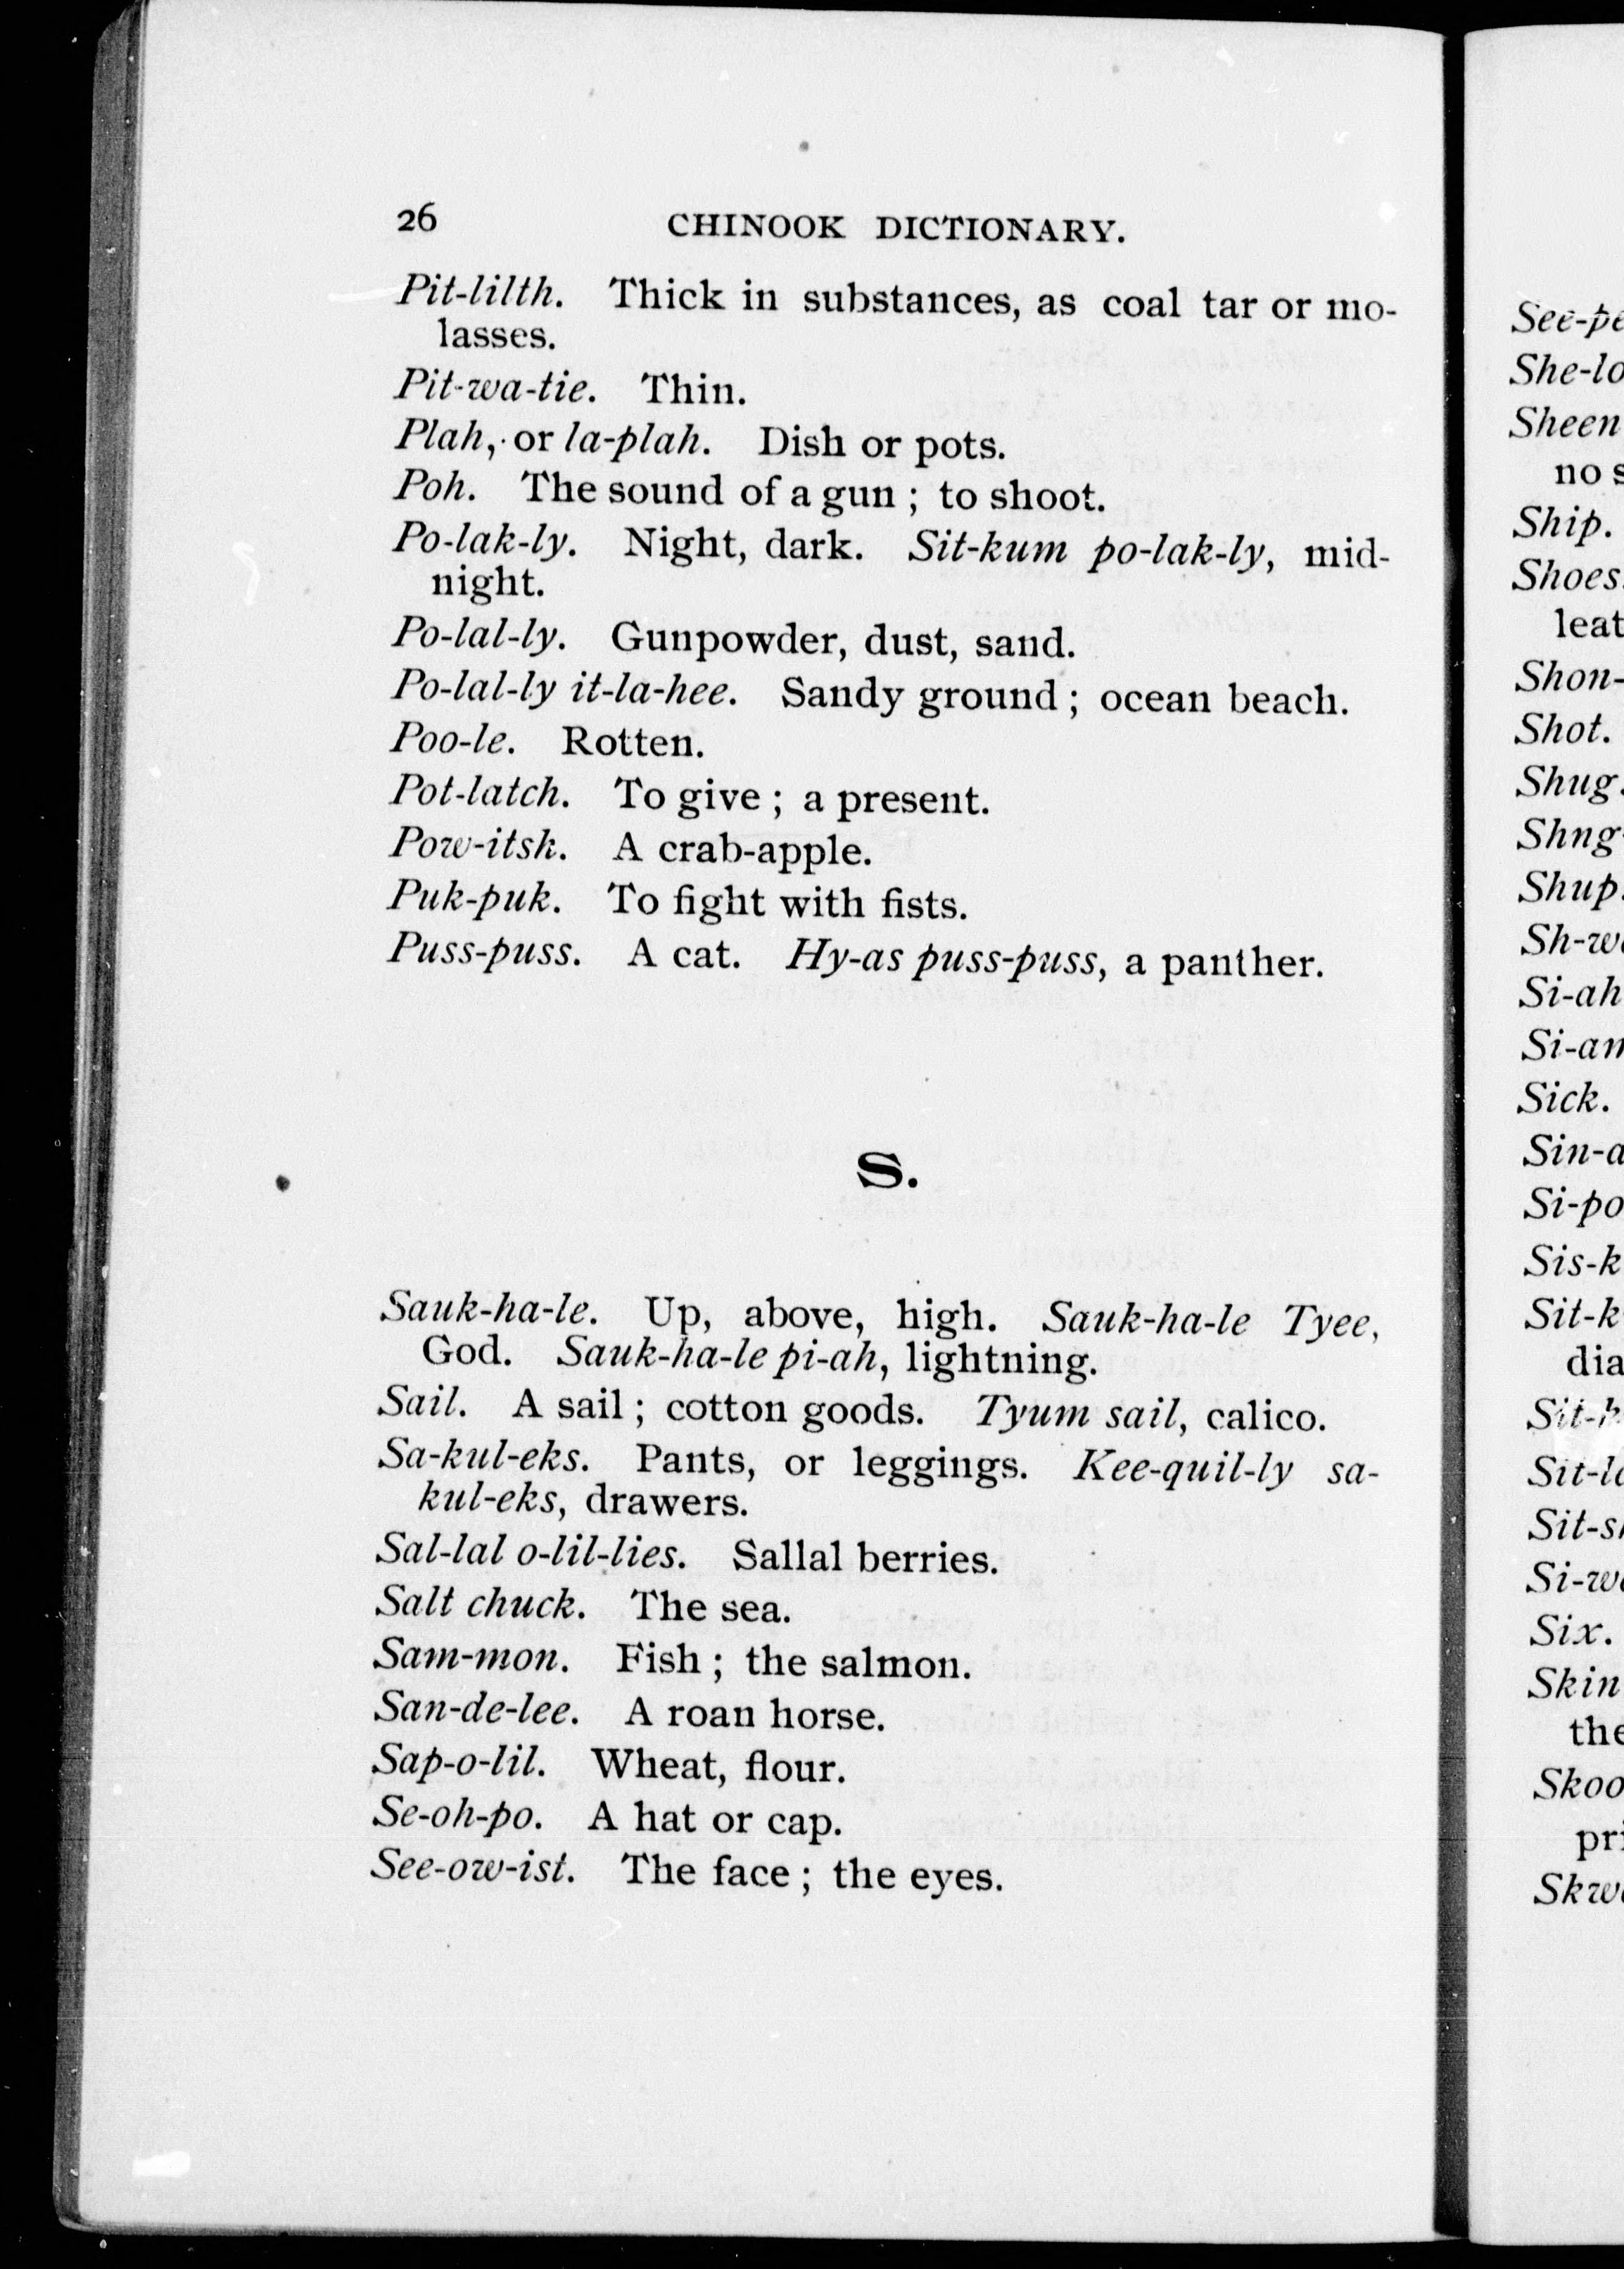 26 CHINOOK DICTIONARY.
Pit-lilth. Thick in substances, as coal tar or mo-
lasses.
Pit-wa-tie. Thin.
Plah, or la-plah. Dish or pots.
Poh. The sound of a gun ; to shoot.
Po-lak-ly. Night, dark. Sit-kum po-lak-ly, mid-
night.
Po-lal-ly. Gunpowder, dust, sand.
Po-lal-ly it-la-hee. Sandy ground ; ocean beach.
Poo-le. Rotten.
Pot-latch. To give ; a present.
Pow-itsk. A crab-apple.
Puk-puk. To fight with fists.
Puss-puss. A cat. Hy-as puss-puss, a panther.
S.
Sauk-ha-le. Up, above, high. Sauk-ha-le Tyee,
God. Sauk-ha-le pi-ah, lightning.
Sail. A sail ; cotton goods. Tyum sail, calico.
Sa-kul-eks. Pants, or leggings. Kee-quil-ly sa-
kul-eks, drawers.
Sal-lal o-lil-lies. Sallal berries.
Salt chuck. The sea.
Sam-mon. Fish ; the salmon.
San-de-lee. A roan horse.
Sap-o-lil. Wheat, flour.
Se-oh-po. A hat or cap.
See-ow-ist. The face ; the eyes.
Sheen
no
Ship.
Shoes.
Shon-
Shot.
Shug.
Shng-
Shup.
Si-ah
Sick.
Six.
Skin